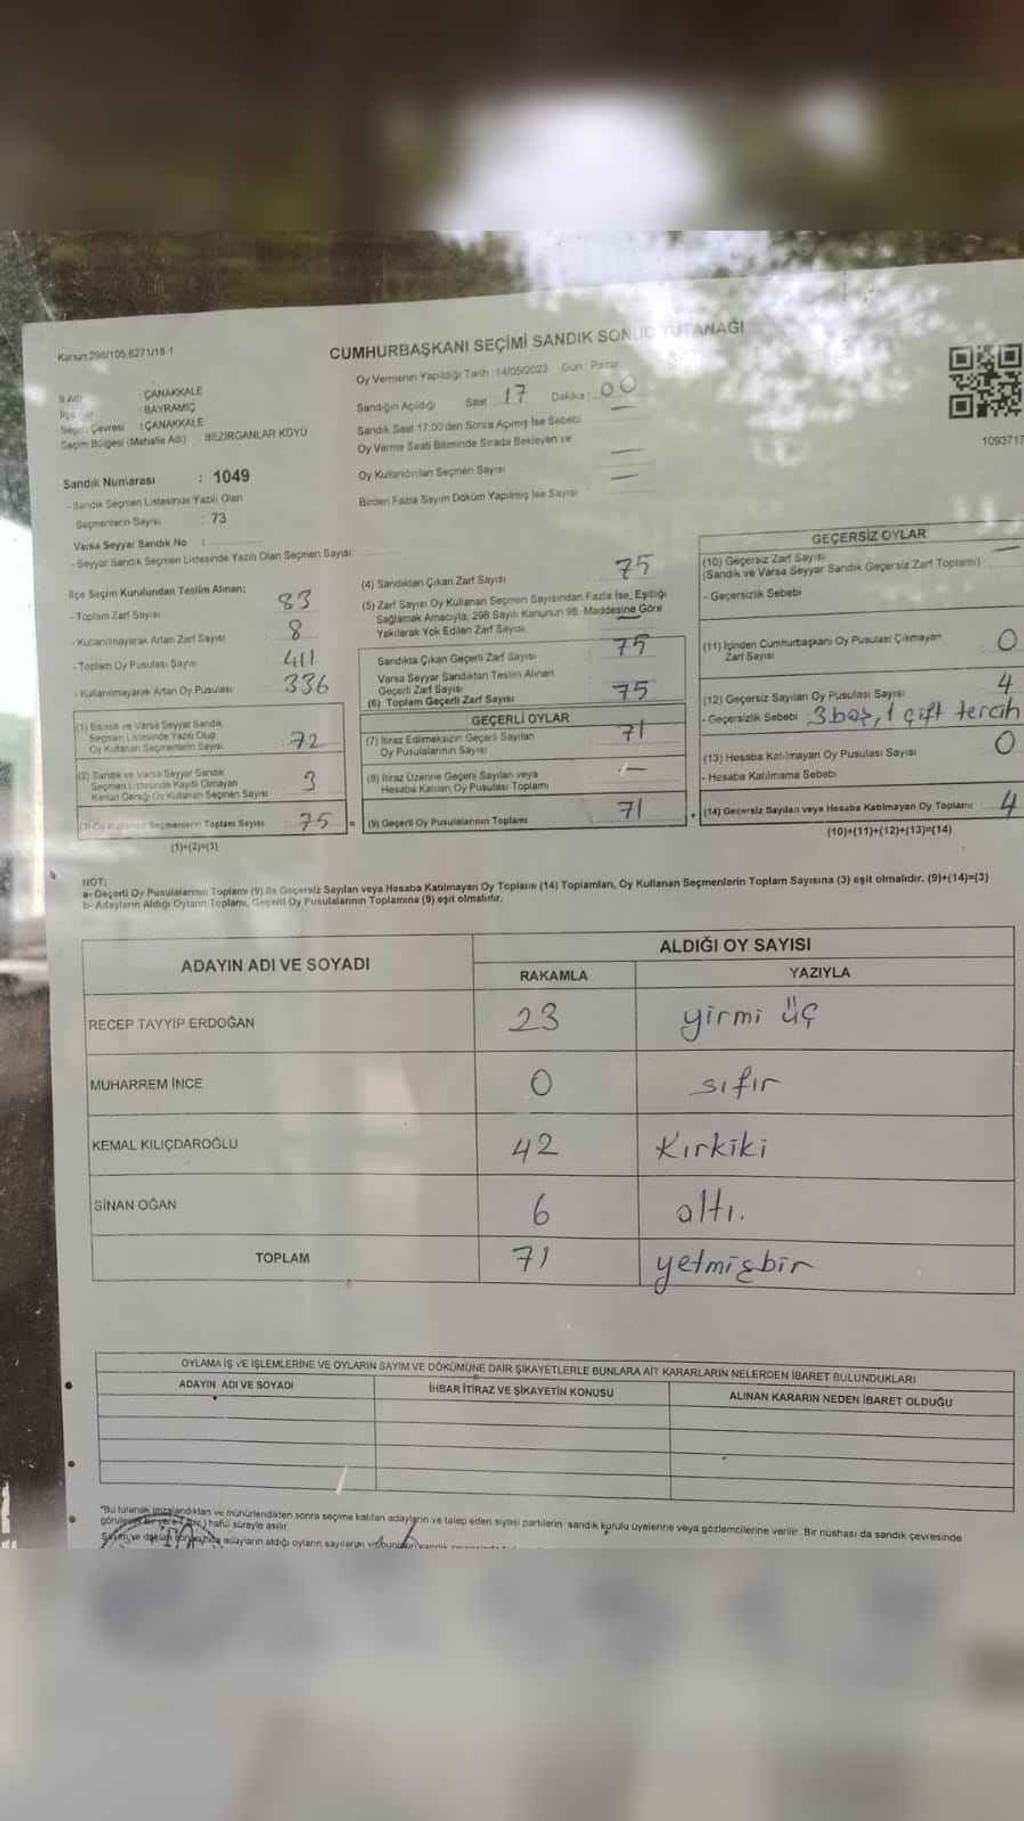 Kanun:298/105,6271/18-1
CUMHURBAŞKANI SEÇİMİ SANDIK SONUÇ TUTANAĞI
Oy Vermenin Yapıldığı Tarih :14/05/2023 Gün : Pazar
İl Adı : ÇANAKKALE
: BAYRAMİÇ
Seçim Çevresi : ÇANAKKALE
Seçim Bölgesi (Mahalle Adı) BEZİRGANLAR KÖYÜ
Sandığın Açıldığı Saat 17 Dakika 00
Sandık Saat 17:00'den Sonra Açılmış İse Sebebi
Oy Verme Saati Bitiminde Sırada Bekleyen ve
Oy Kullandırılan Seçmen Sayısı
Birden Fazla Sayım Döküm Yapılmış İse Sayısı
1093717
Sandık Numarası : 1049
- Sandık Seçmen Listesinde Yazılı Olan
Seçmenlerin Sayısı : 73
Varsa Seyyar Sandık No :
- Seyyar Sandık Seçmen Listesinde Yazılı Olan Seçmen Sayısı:
İlçe Seçim Kurulundan Teslim Alınan:
- Toplam Zarf Sayısı 83
- Kullanılmayarak Artan Zarf Sayısı 8
- Toplam Oy Pusulası Sayısı 411
- Kullanılmayarak Artan Oy Pusulası 336
(1) Sandık ve Varsa Seyyar Sandık
Seçmen Listesinde Yazılı Olup
Oy Kullanan Seçmenlerin Sayısı 72
(2) Sandık ve Varsa Seyyar Sandık
Seçmen Listesinde Kayıtlı Olmayan
Kanun Gereği Oy Kullanan Seçmen Sayısı 3
(3) Oy Kullanan Seçmenlerin Toplam Sayısı 75 =
(1)+(2)=(3)
(4) Sandıktan Çıkan Zarf Sayısı 75
(5) Zarf Sayısı Oy Kullanan Seçmen Sayısından Fazla İse, Eşitliği
Sağlamak Amacıyla; 298 Sayılı Kanunun 98. Maddesine Göre
Yakılarak Yok Edilen Zarf Sayısı
Sandıkta Çıkan Geçerli Zarf Sayısı 75
Varsa Seyyar Sandıktan Teslim Alınan
Geçerli Zarf Sayısı
(6) Toplam Geçerli Zarf Sayısı 75
GEÇERLİ OYLAR
(7) İtiraz Edilmeksizin Geçerli Sayılan
Oy Pusulalarının Sayısı 71
(8) İtiraz Üzerine Geçerli Sayılan veya
Hesaba Katılan Oy Pusulası Toplamı —
(9) Geçerli Oy Pusulalarının Toplamı 71 +
GEÇERSİZ OYLAR
(10) Geçersiz Zarf Sayısı —
(Sandık ve Varsa Seyyar Sandık Geçersiz Zarf Toplamı)
- Geçersizlik Sebebi
(11) İçinden Cumhurbaşkanı Oy Pusulası Çıkmayan
Zarf Sayısı 0
(12) Geçersiz Sayılan Oy Pusulası Sayısı 4
- Geçersizlik Sebebi 3 boş, 1 çift tercih
(13) Hesaba Katılmayan Oy Pusulası Sayısı 0
- Hesaba Katılmama Sebebi
(14) Geçersiz Sayılan veya Hesaba Katılmayan Oy Toplamı 4
(10)+(11)+(12)+(13)=(14)
NOT:
a- Geçerli Oy Pusulalarının Toplamı (9) ile Geçersiz Sayılan veya Hesaba Katılmayan Oy Toplamı (14) Toplamları, Oy Kullanan Seçmenlerin Toplam Sayısına (3) eşit olmalıdır. (9)+(14)=(3)
b- Adayların Aldığı Oyların Toplamı, Geçerli Oy Pusulalarının Toplamına (9) eşit olmalıdır.
ADAYIN ADI VE SOYADI
ALDIĞI OY SAYISI
RAKAMLA YAZIYLA
RECEP TAYYİP ERDOĞAN 23 yirmi üç
MUHARREM İNCE 0 sıfır
KEMAL KILIÇDAROĞLU 42 Kırkiki
SİNAN OĞAN 6 altı.
TOPLAM 71 yetmişbir
OYLAMA İŞ VE İŞLEMLERİNE VE OYLARIN SAYIM VE DÖKÜMÜNE DAİR ŞİKAYETLERLE BUNLARA AİT KARARLARIN NELERDEN İBARET BULUNDUKLARI
ADAYIN ADI VE SOYADI İHBAR İTİRAZ VE ŞİKAYETİN KONUSU ALINAN KARARIN NEDEN İBARET OLDUĞU
"Bu tutanak imzalandıktan ve mühürlendikten sonra seçime katılan adayların ve talep eden siyasi partilerin sandık kurulu üyelerine veya gözlemcilerine verilir. Bir nüshası da sandık çevresinde
hafta süreyle asılır.
adayların aldığı oyların sayılarını